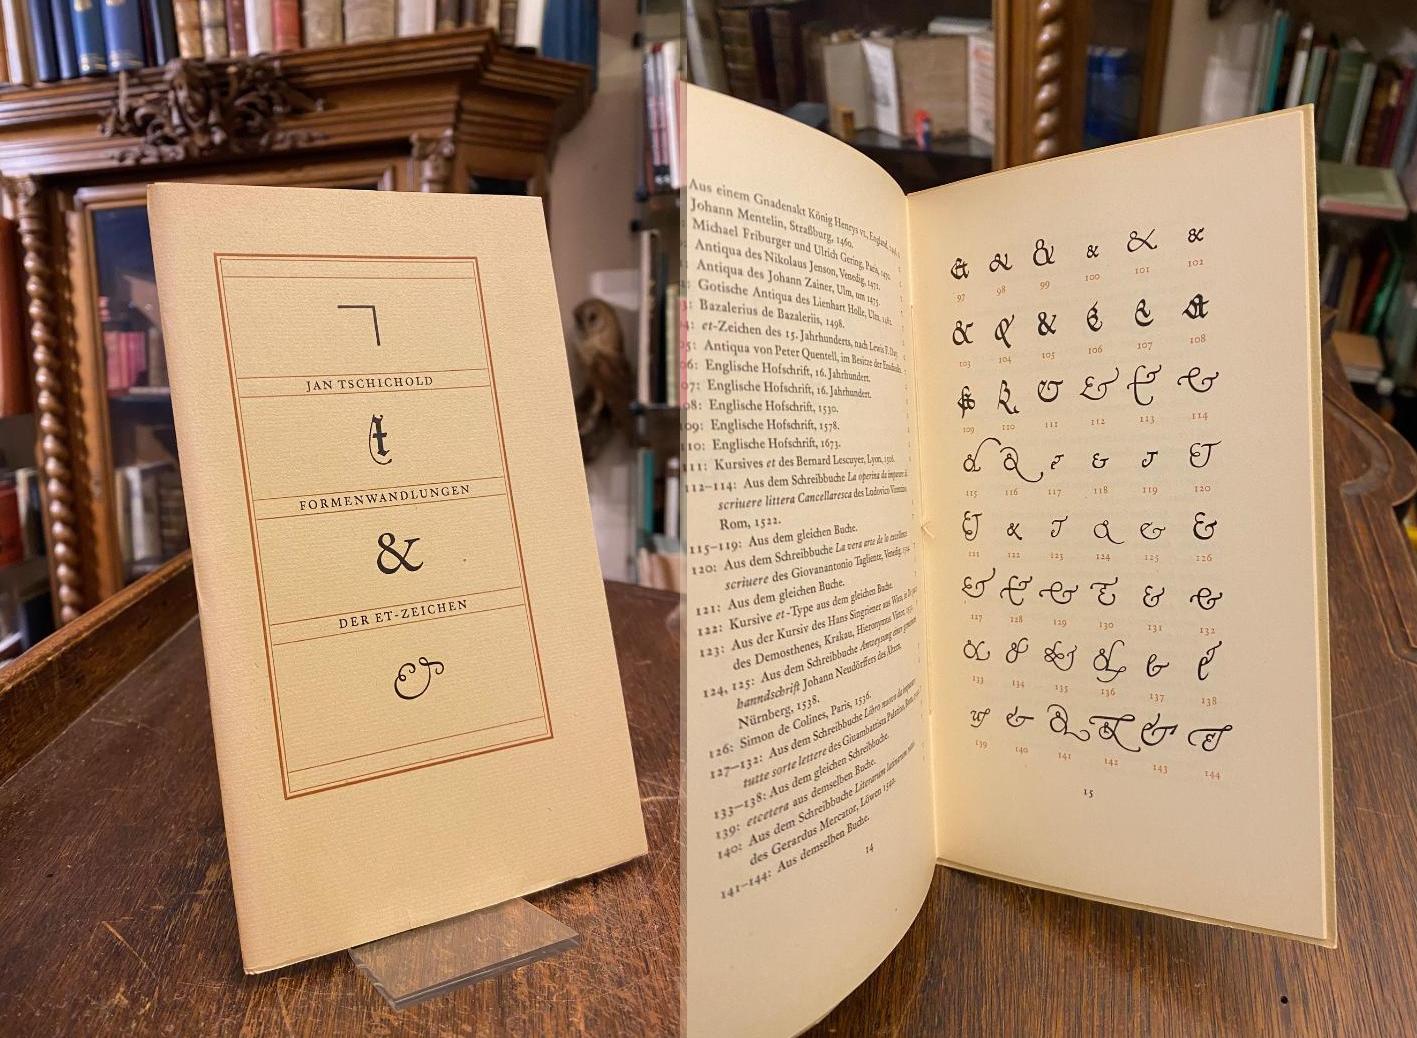 ⁊
JAN TSCHICHOLD
FORMENWANDLUNGEN
&
DER ET-ZEICHEN
&
Aus einem Gnadenakt König Henrys VI., England,
Johann Mentelin, Straßburg, 1460.
Michael Friburger und Ulrich Gering, Paris,
Antiqua des Nikolaus Jenson, Venedig, 1471.
Antiqua des Johann Zainer, Ulm, um 1475.
Gotische Antiqua des Lienhart Holle, Ulm,
Bazalerius de Bazaleriis, 1498.
et-Zeichen des 15. Jahrhunderts, nach Lewis F. Day.
Antiqua von Peter Quentell, im Besitze der Enschedés.
06: Englische Hofschrift, 16. Jahrhundert.
07: Englische Hofschrift, 16. Jahrhundert.
08: Englische Hofschrift, 1530.
09: Englische Hofschrift, 1578.
110: Englische Hofschrift, 1673.
111: Kursives et des Bernard Lescuyer, Lyon,
112–114: Aus dem Schreibbuche La operina da imparare di
scriuere littera Cancellaresca des Ludovico Vicentino,
Rom, 1522.
115–119: Aus dem gleichen Buche.
120: Aus dem Schreibbuche La vera arte de lo excellente
scriuere des Giovanantonio Tagliente, Venedig,
121: Aus dem gleichen Buche.
122: Kursive et-Type aus dem gleichen Buche.
123: Aus der Kursiv des Hans Singriener aus Wien,
des Demosthenes, Krakau, Hieronymus Vietor,
124, 125: Aus dem Schreibbuche Anweysung einer gemeinen
hanndschrift Johann Neudörffers des Älteren,
Nürnberg, 1538.
126: Simon de Colines, Paris, 1536.
127–132: Aus dem Schreibbuche Libro nuovo da imparare
tutte sorte lettere des Giuambattista Palatino, Rom,
133–138: Aus dem gleichen Schreibbuche.
139: etcetera aus demselben Buche.
140: Aus dem Schreibbuche Literarum latinarum
des Gerardus Mercator, Löwen 1540.
141–144: Aus demselben Buche.
14
97 98 99 100 101 102
103 104 105 106 107 108
109 110 111 112 113 114
115 116 117 118 119 120
121 122 123 124 125 126
127 128 129 130 131 132
133 134 135 136 137 138
139 140 141 142 143 144
15